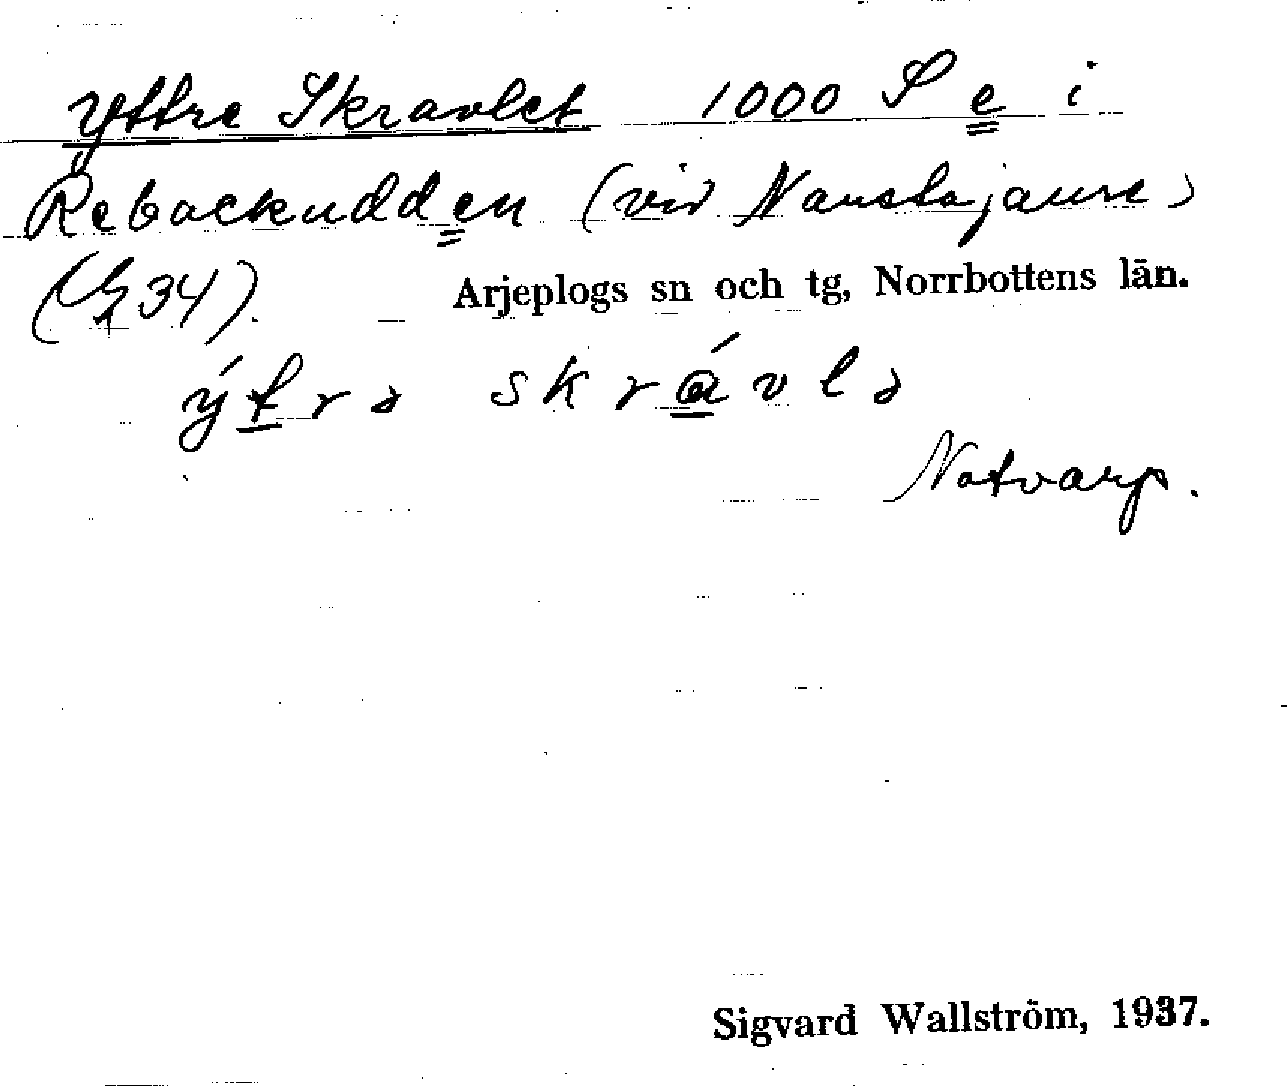 Yttre Skravlet 1000 S e i
Rebackudden (vid Naustajaure)
(G 34).
Arjeplogs sn och tg, Norrbottens län.
ýtrə skrávlə
Notvarp.
Sigvard Wallström, 1937.